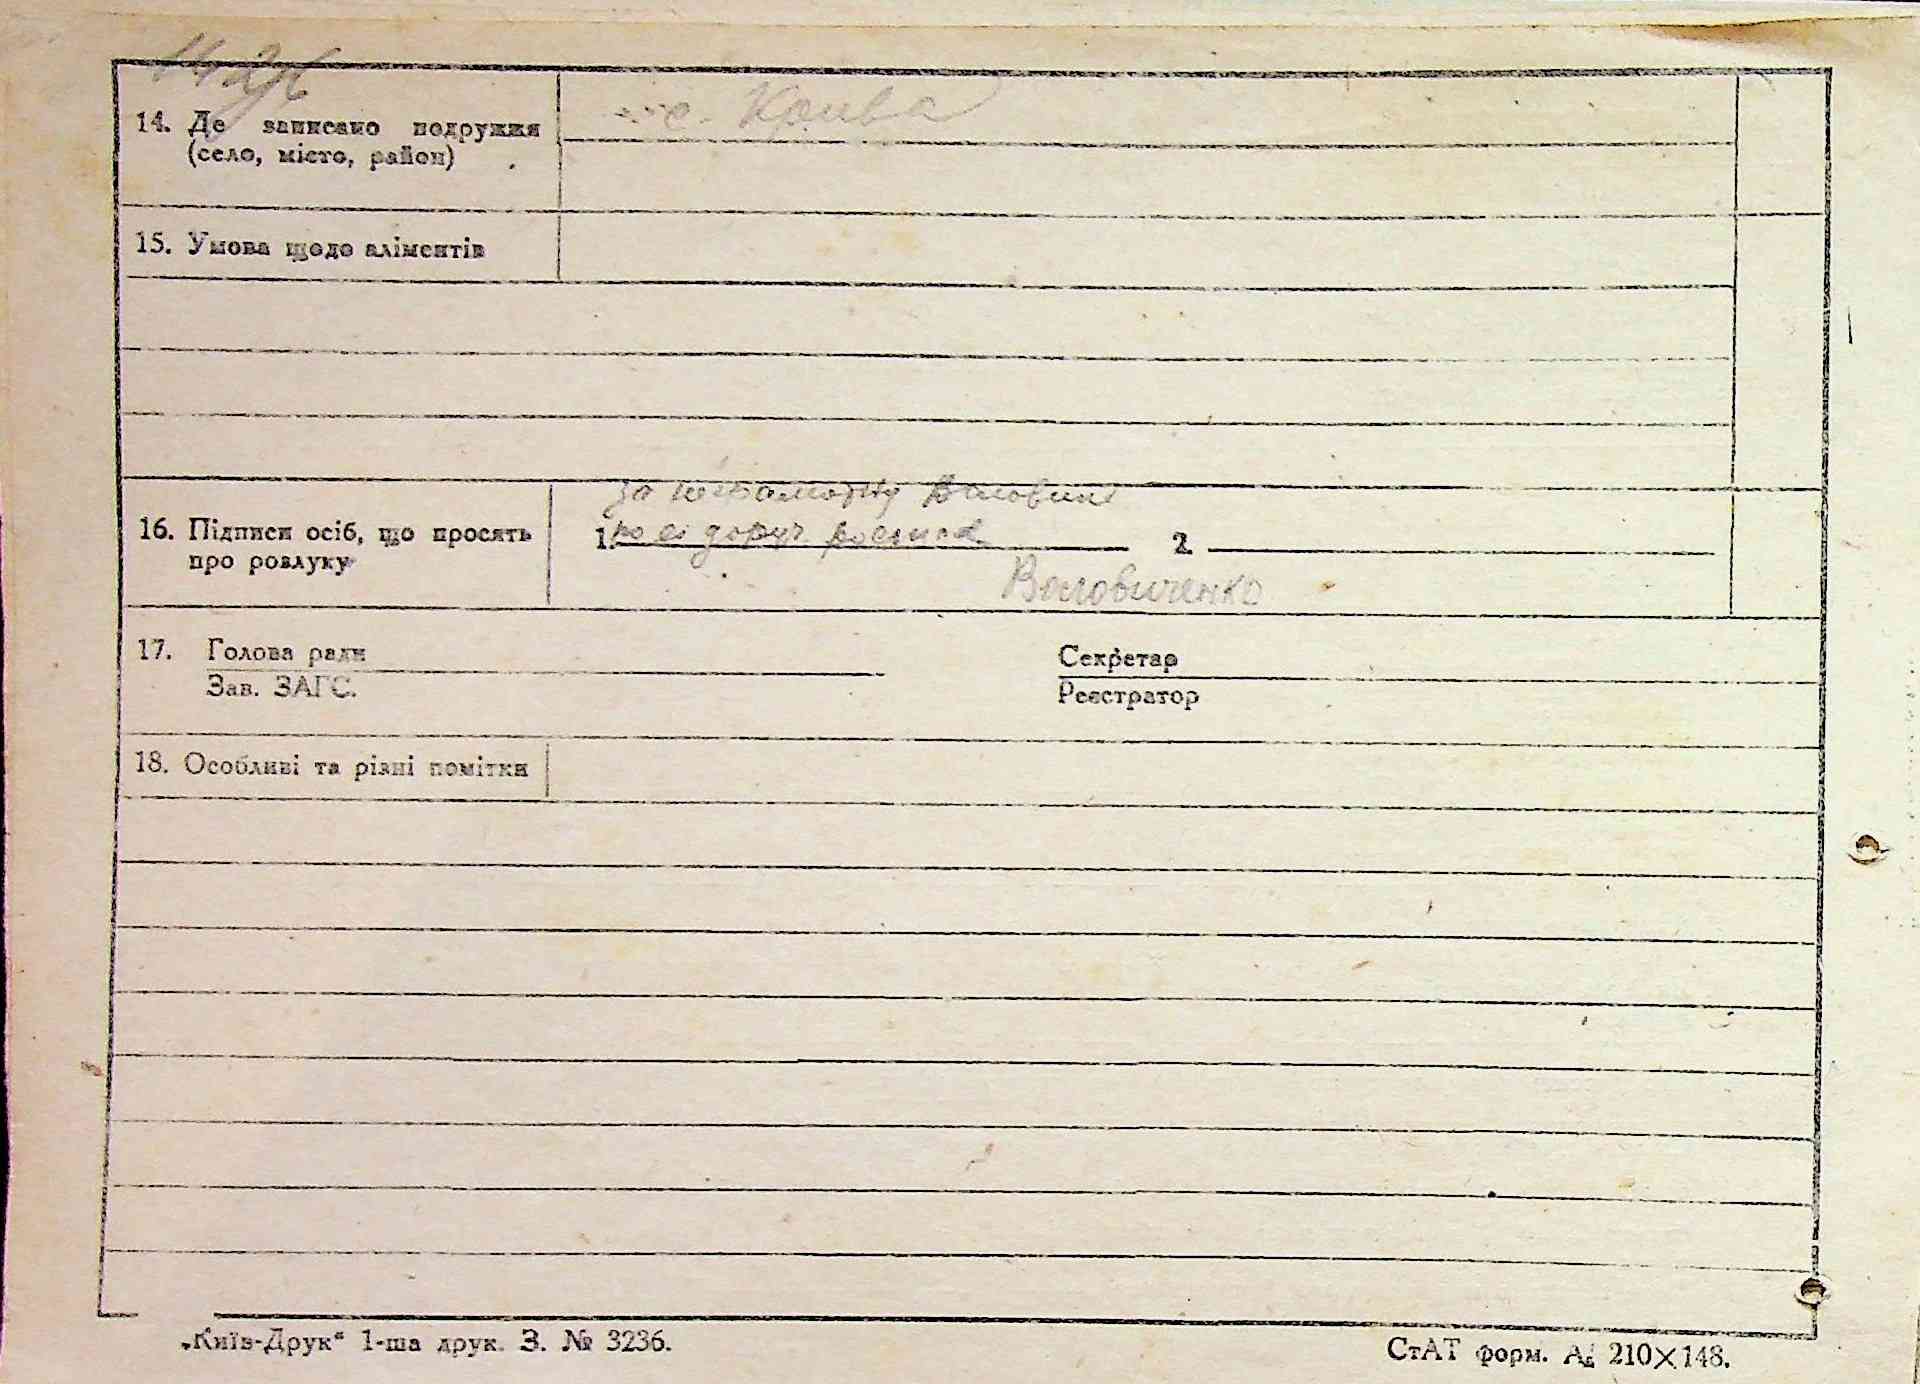 14. Де записано подружжя
(село, місто, район)
с. Крива
15. Умова щодо аліментів
16. Підписи осіб, що просять
про розлуку
за неграмотну
1. по єі доруч. 2.
Воловиченко
17. Голова ради
Зав. ЗАГС.
Секретар
Реєстратор
18. Особливі та різні помітки
„Київ-Друк“ 1-ша друк. З. № 3236.
СтАТ форм. А₅ 210×148.